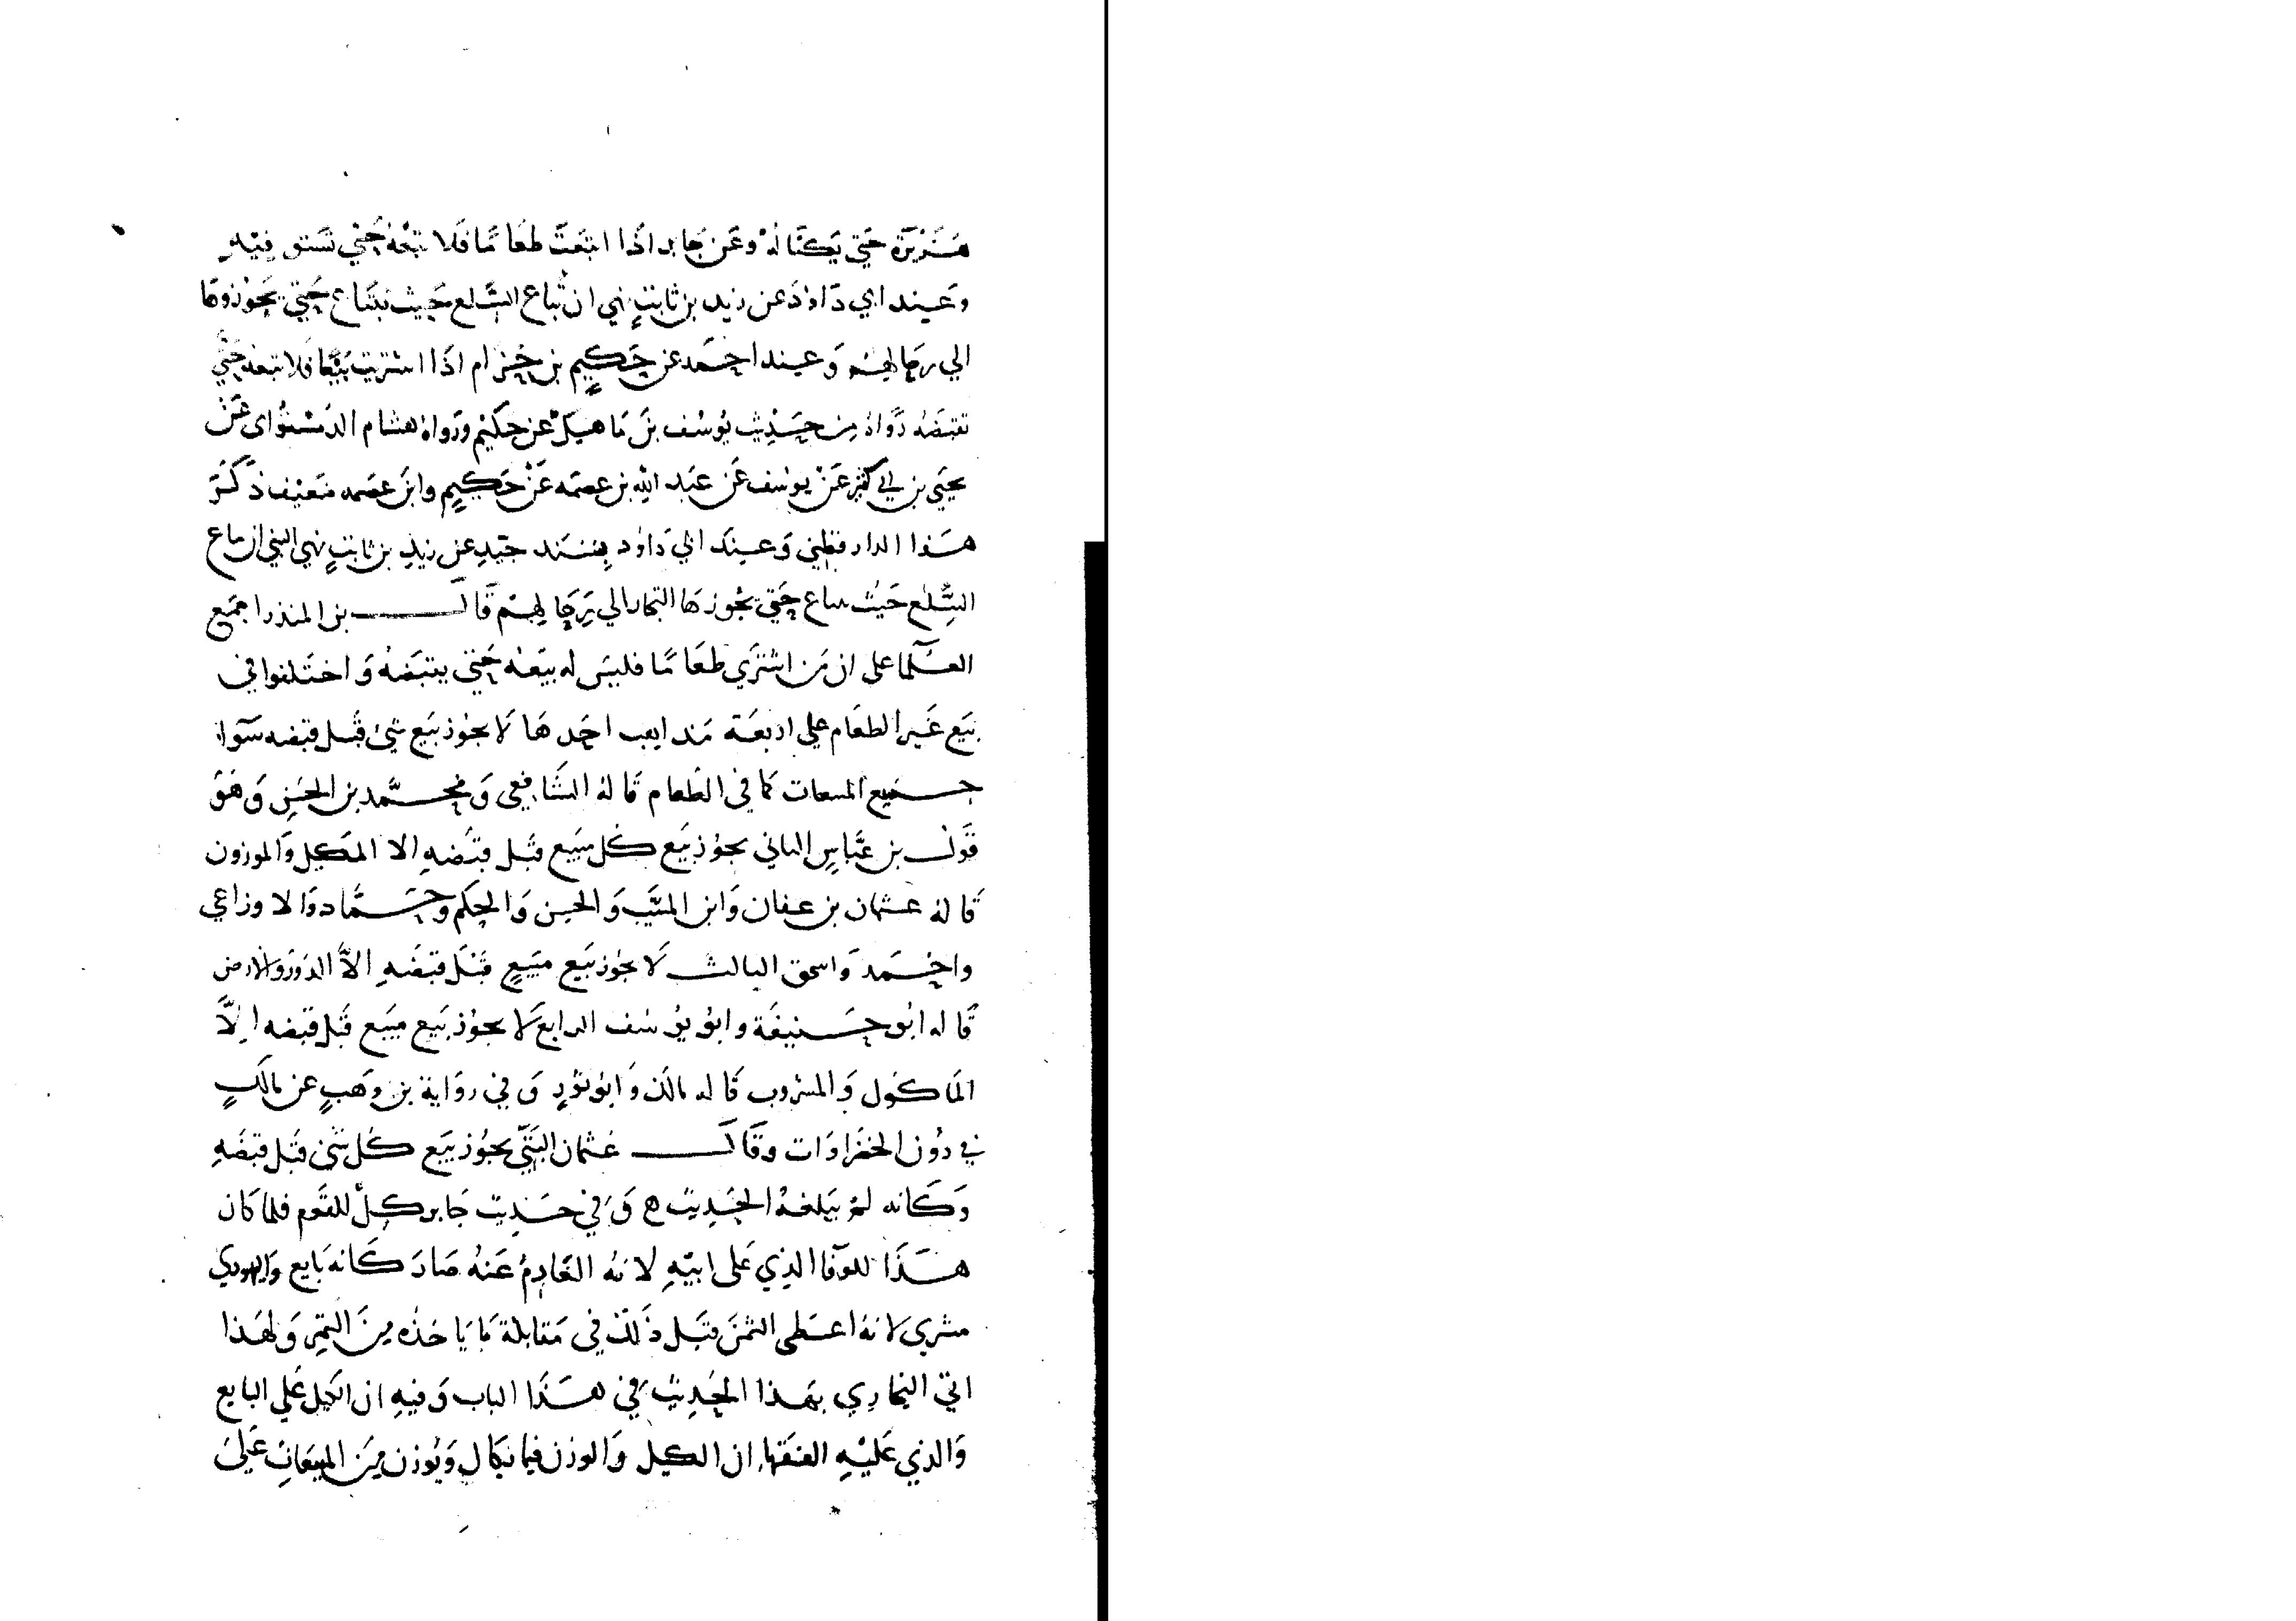 هريرة حتي يكتاله وعن جابر اذا ابتعت طعاما فلا تبعه حتي تستوفيه
وعند ابي داود عن زيد بن ثابت نهي ان تباع السلع حيث تبتاع حتي يحوزوها
الي رحالهم وعند احمد عن حكيم بن حزام اذا اشتريت بيعا فلا تبعه حتي
تقبضه رواه من حديث يوسف بن ماهيك عن حكيم ورواه هشام الدستواي عن
يحيي بن ابي كثير عن يوسف عن عبد الله بن عصمه عن حكيم وابن عصمه ضعيف ذكر
هذا الدارقطني وعند ابي داود بسند جيد عن زيد بن ثابت نهي النبي ان تباع
السلع حيث تباع حتي يحوزها التجار الي رحالهم قال بن المنذر اجمع
العلما علي ان من اشتري طعاما فليس له بيعه حتي يقبضه واختلفوا في
بيع غير الطعام علي اربعة مذاهب احدها لا يجوز بيع شي قبل قبضه سوا
جميع المبيعات كما في الطعام قاله الشافعي ومحمد بن الحسن وهو
قول بن عباس الثاني يجوز بيع كل مبيع قبل قبضه الا المكيل والموزون
قاله عثمان بن عفان وابن المسيب والحسن والحكم وحماد والاوزاعي
واحمد واسحق الثالث لا يجوز بيع مبيع قبل قبضه الا الدور والارض
قاله ابو حنيفة وابو يوسف الرابع لا يجوز بيع مبيع قبل قبضه الا
الماكول والمشروب قاله مالك وابو ثور وفي رواية بن وهب عن مالك
في دون الخضراوات وقال عثمان البتي يجوز بيع كل شي قبل قبضه
وكانه لم يبلغه الحديث ه وفي حديث جابر كل للقوم فلما كان
هذا للوفا الذي علي ابيه لانه الغارم عنه صار كانه بايع واليهودي
مشري لانه اعطي الثمن قبل ذلك في مقابلة ما ياخذه من التمر ولهذا
اتي البخاري بهذا الحديث في هذا الباب وفيه ان الكيل علي البايع
والذي عليه الفقها ان الكيل والوزن فيما يكال ويوزن من المبيعات علي